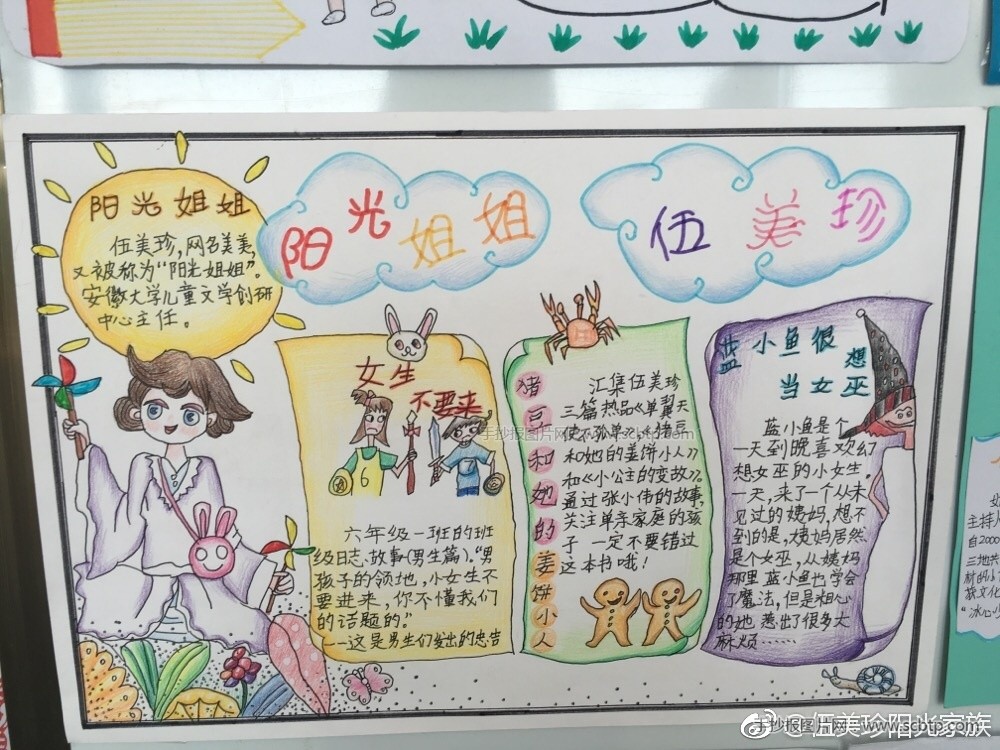 阳光姐姐
伍美珍,网名美美,
又被称为“阳光姐姐”。
安徽大学儿童文学创研
中心主任。
阳光姐姐
伍美珍
女生
不要来
六年级一班的班
级日志,故事(男生篇)。“男
孩子的领地,小女生不
要进来,你不懂我们
的话题的。”
——这是男生们发出的忠告
猪豆和她的姜饼小人
汇集伍美珍
三篇热品《单翼天
使不孤单》《猪豆
和她的姜饼小人》
和《小公主的变故》。
通过张小伟的故事,
关注单亲家庭的孩
子 一定不要错过
这本书哦!
蓝小鱼很想
当女巫
蓝小鱼是个
一天到晚喜欢幻
想女巫的小女生。
一天,来了一个从未
见过的姨妈,想不
到的是,姨妈居然
是个女巫,从姨妈
那里蓝小鱼也学会
了魔法,但是粗心
的她 惹出了很多大
麻烦……
主持人
自2000
三地荣
材的小
获文化
“冰心小
手抄报图片网-www.scbtp.com
手抄报图片网-www.scbtp.com
@伍美珍阳光家族